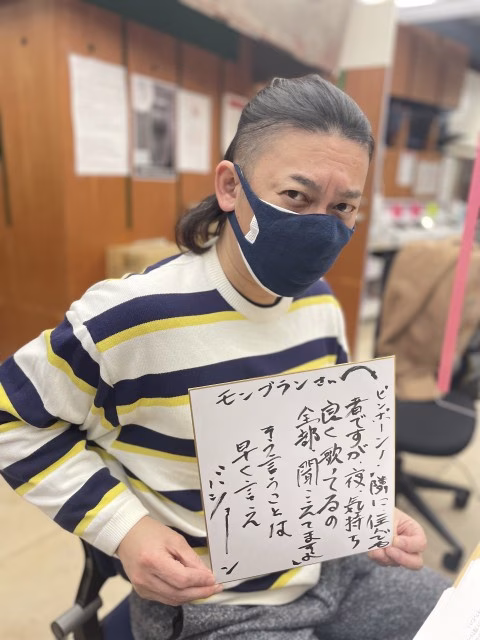 モンブランさんへ
ピンポーン！隣に住んでる
者ですが、夜、気持ち
良く歌ってるの
全部、聞こえてますよ
そう言うことは
早く言え
バジョーン